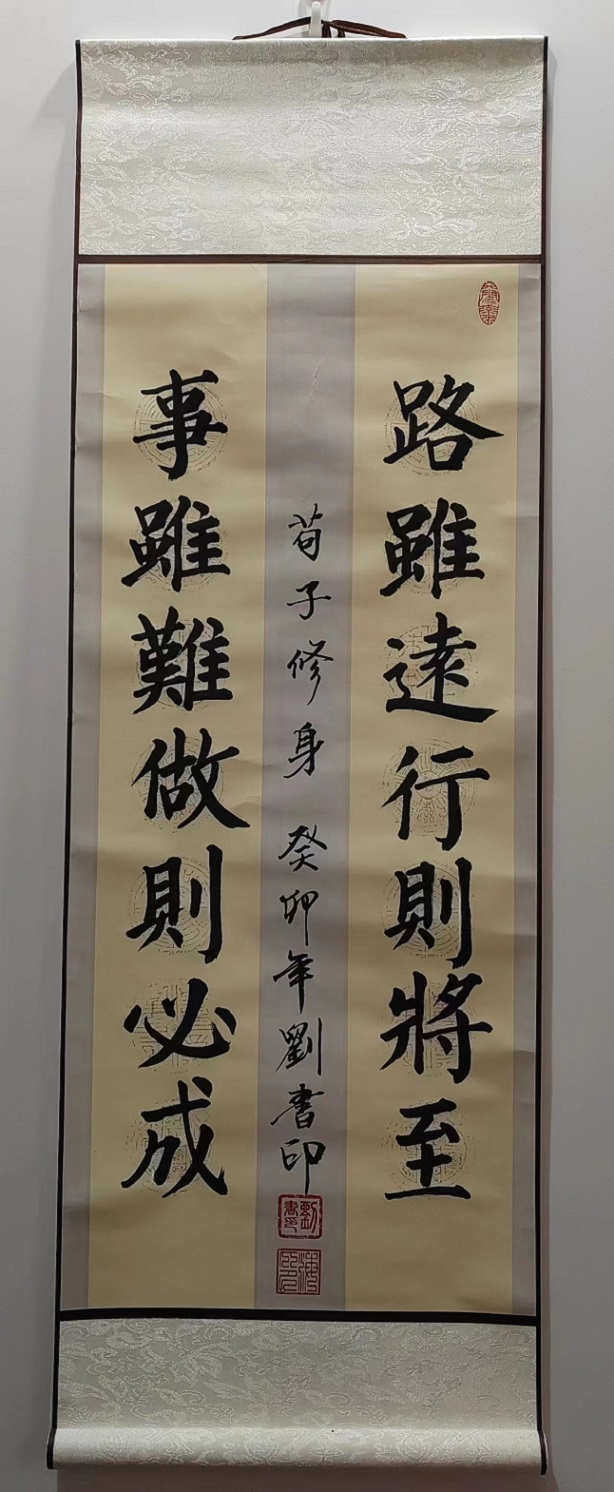 路雖遠行則將至
事雖難做則必成
荀子修身 癸卯年劉書印